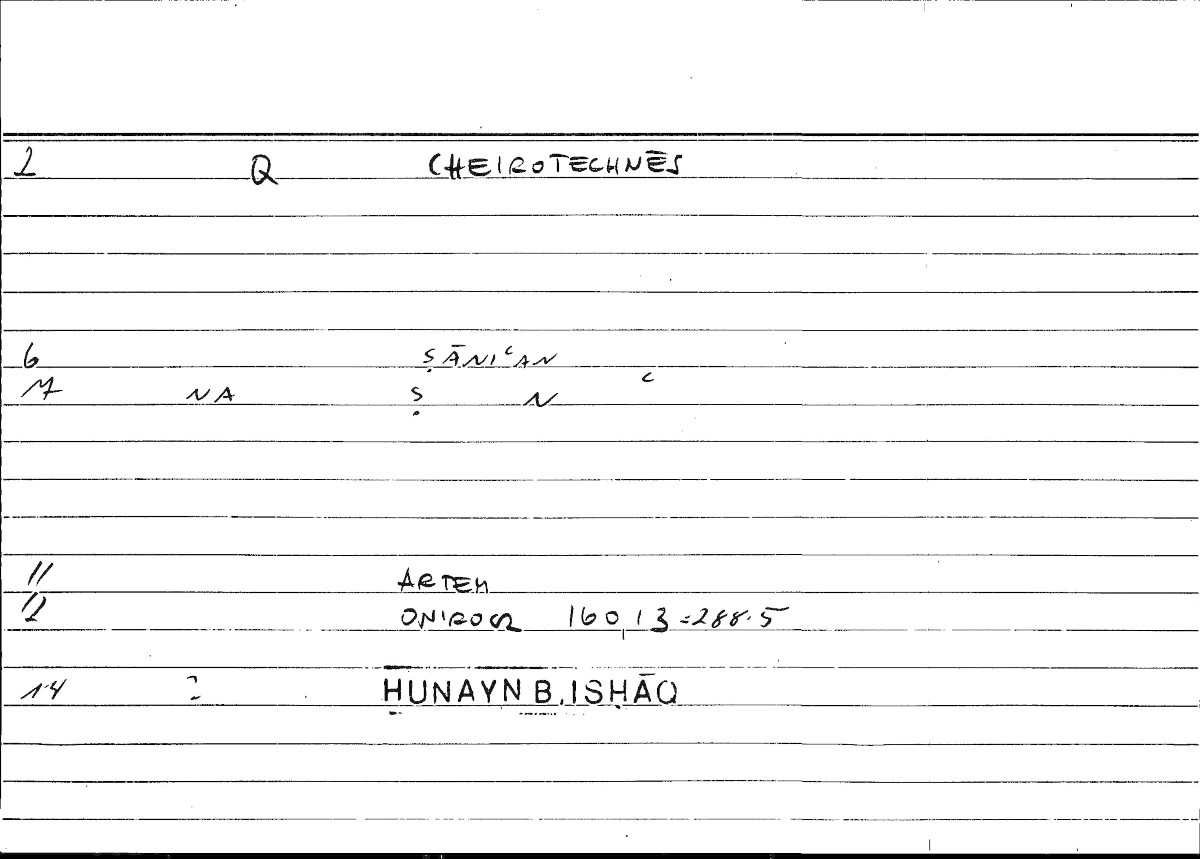 2 Q CHEIROTECHNĒS
6 ṢĀNIʿAN
7 NA Ṣ N ʿ
11 ARTEM
12 ONIROCR 160,13=288.5
14 2 ḤUNAYN B. ISḤĀQ